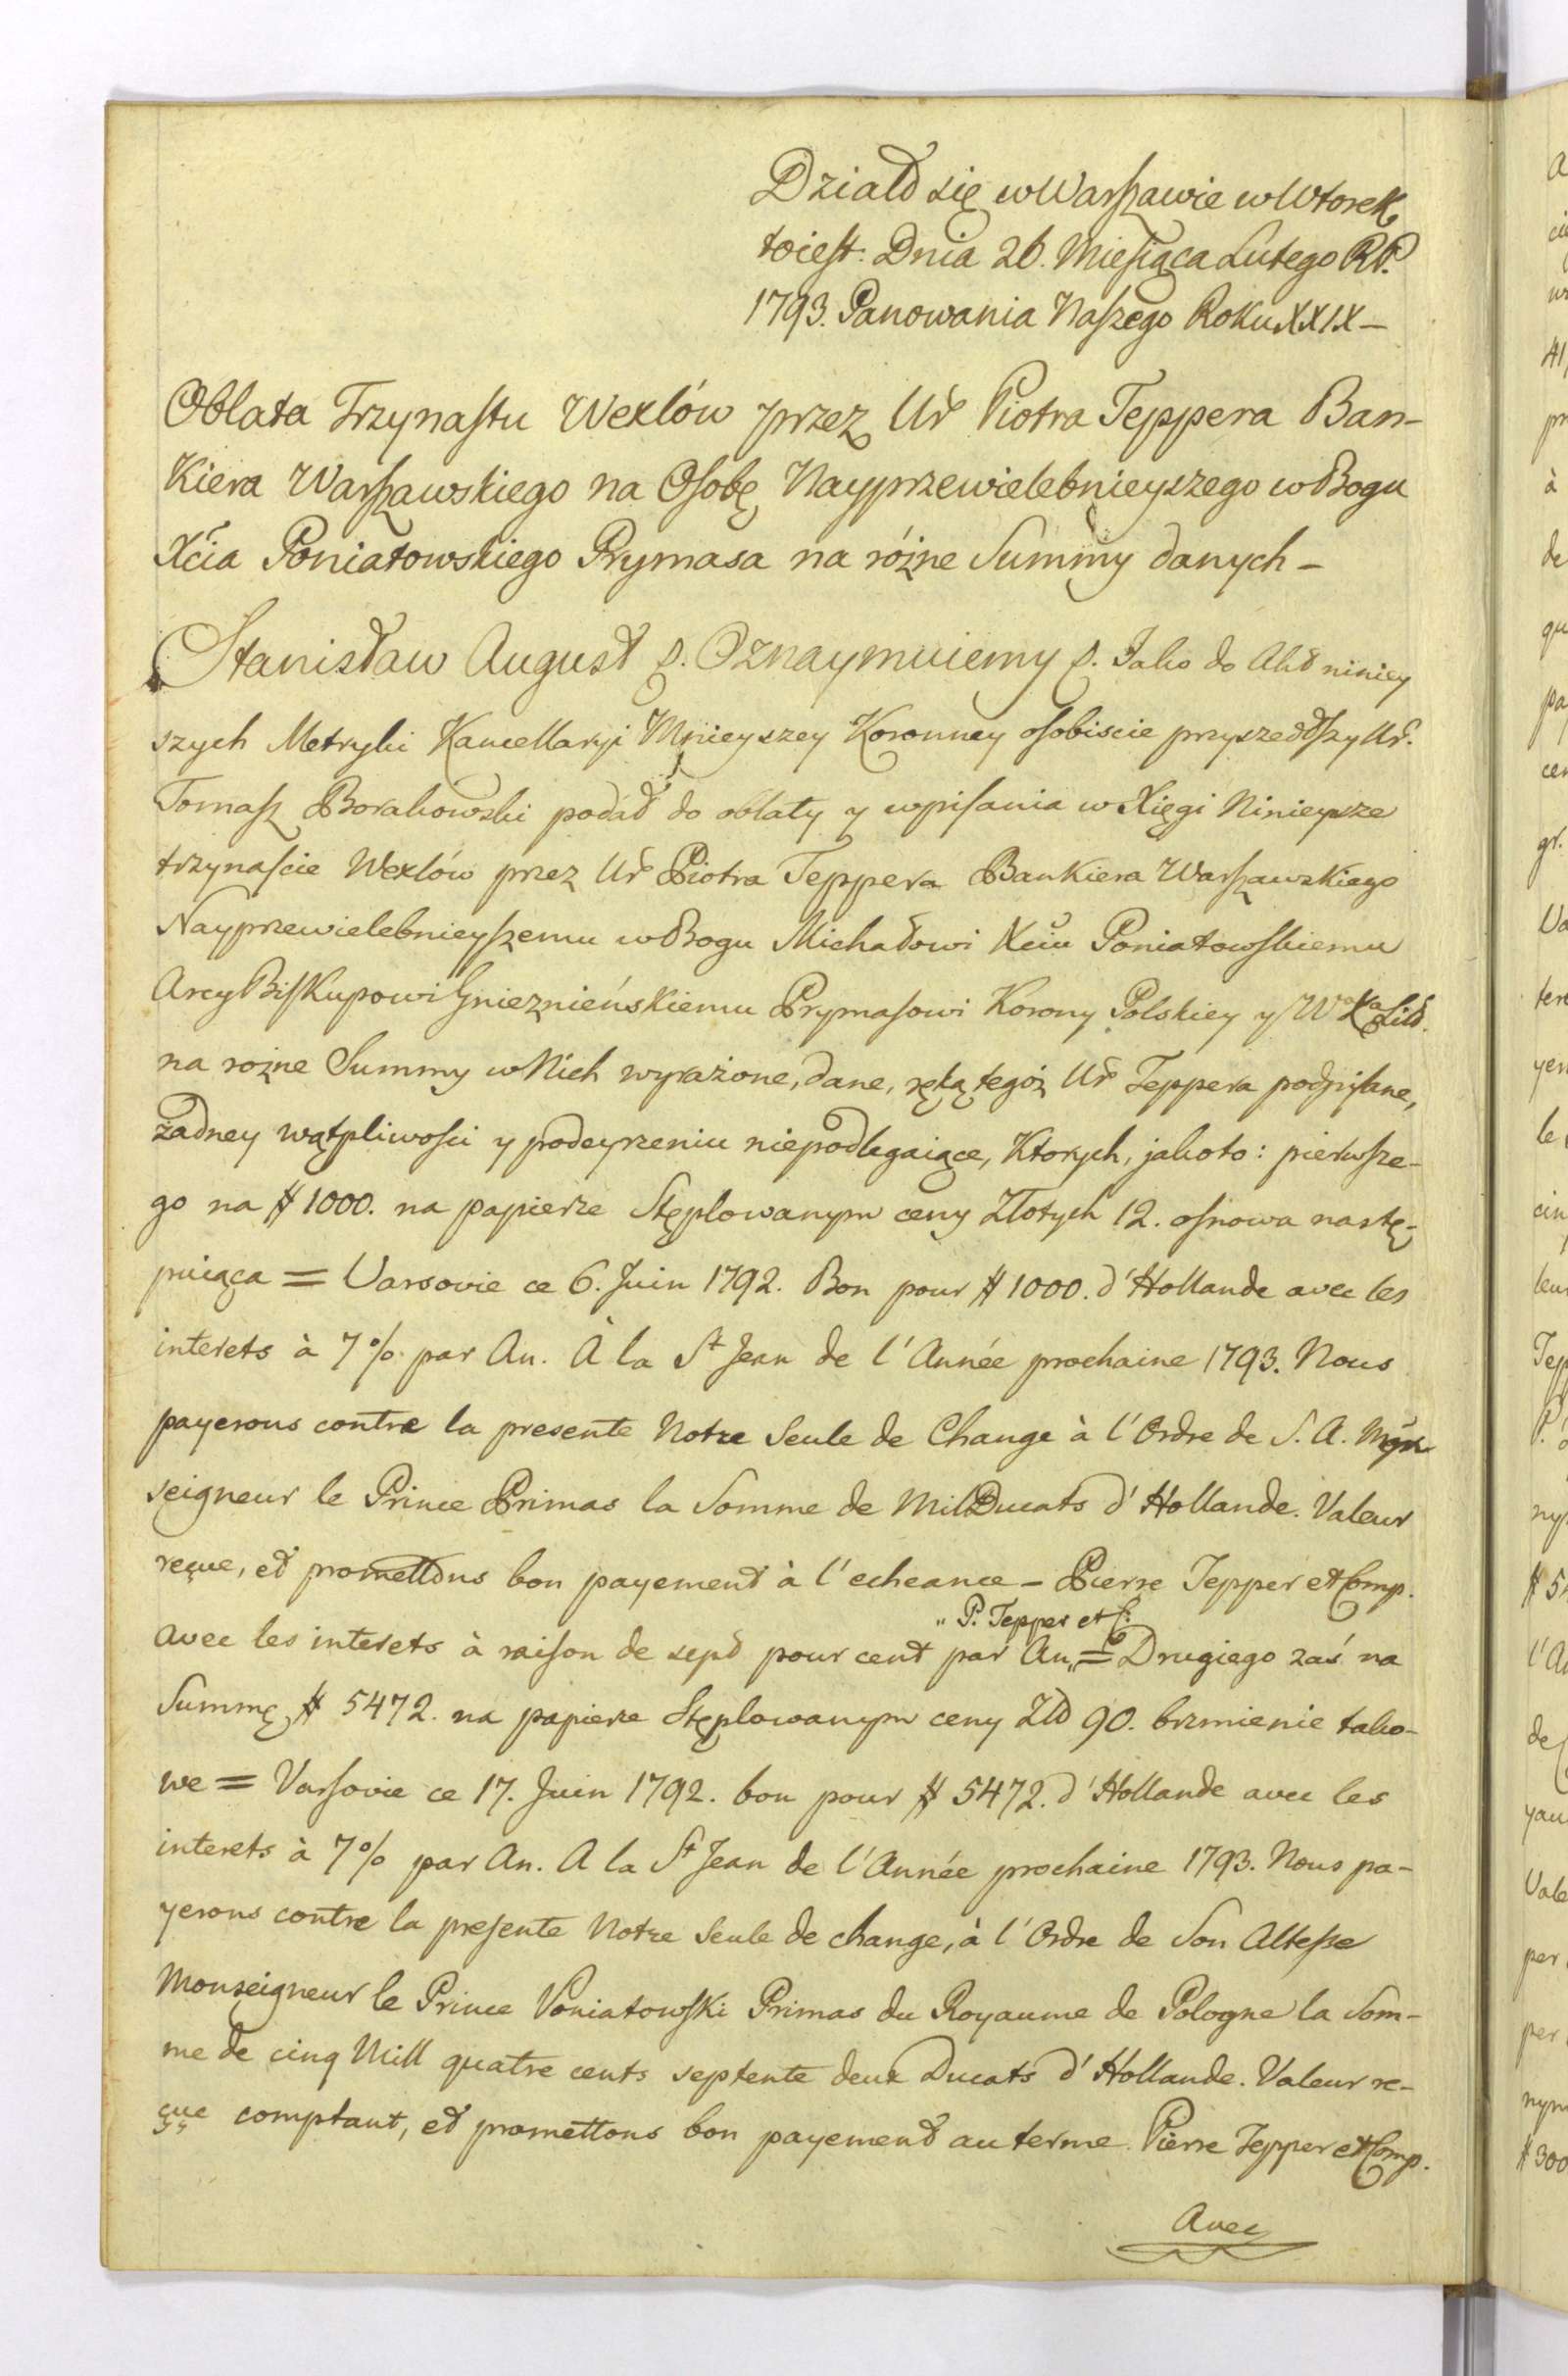 Działo się w Warszawie w Wtorek
to iest: Dnia 26. Miesiąca Lutego RP.
1793. Panowania Naszego Roku XXIX –
Oblata Trzynastu Wexlów przez Ur Piotra Teppera Ban-
kiera Warszawskiego na Osobę Nayprzewielebnieyszego w Bogu
Xcia Poniatowskiego Prymasa na różne Summy danych –
Stanisław August &. Oznaymuiemy &. Jako do Akt niniey
szych Metryki Kancellaryi Mnieyszey Koronney osobiscie przyszedłszy Ur.
Tomasz Borakowski podał do oblaty y wpisania w Xięgi Ninieysze
trzynaście Wexlów przez Ur Piotra Teppera Bankiera Warszawskiego
Nayprzewielebnieyszemu w Bogu Michałowi Xciu Poniatowskiemu
Arcy Biskupowi Gnieznieńskiemu Prymasowi Korony Polskiey y W Xa Litt.
na rożne Summy w Nich wyrażone, dane, ręką tegoż Ur Teppera podpisane,
żadney wątpliwości y podeyrzeniu niepodlegaiące, Ktorych, jakoto: pierwsze-
go na # 1000. na papierze Stęplowanym ceny Złotych 12. osnowa nastę-
puiąca = Varsovie ce 6. Juin 1792. Bon pour # 1000. d'Hollande avec les
interets à 7 % par An. À la St Jean de l'Année prochaine 1793. Nous
payerons contre la presente Notre Seule de Change à l'Ordre de S. A. Mon
seigneur le Prince Primas la Somme de Mil Ducats d'Hollande. Valeur
reçue, et promettons bon payement à l'echeance – Pierre Tepper et Comp.
„ P. Tepper et C:
avec les interets à raison de sept pour cent par An „ = Drugiego zaś na
Summę # 5472. na papierze Stęplowanym ceny Złt 90. brzmienie tako-
we = Varsovie ce 17. Juin 1792. bon pour # 5472. d'Hollande avec les
interets à 7 % par An. A la St Jean de l'Année prochaine 1793. Nous pa-
yerons contre la presente Notre Seule de change, à l'Ordre de Son Altesse
Monseigneur le Prince Poniatowski Primas du Royaume de Pologne la Som-
me de cinq Mill quatre cents septente deux Ducats d'Hollande. Valeur re-
çue comptant, et promettons bon payement au terme. Pierre Tepper et Comp.
Avec